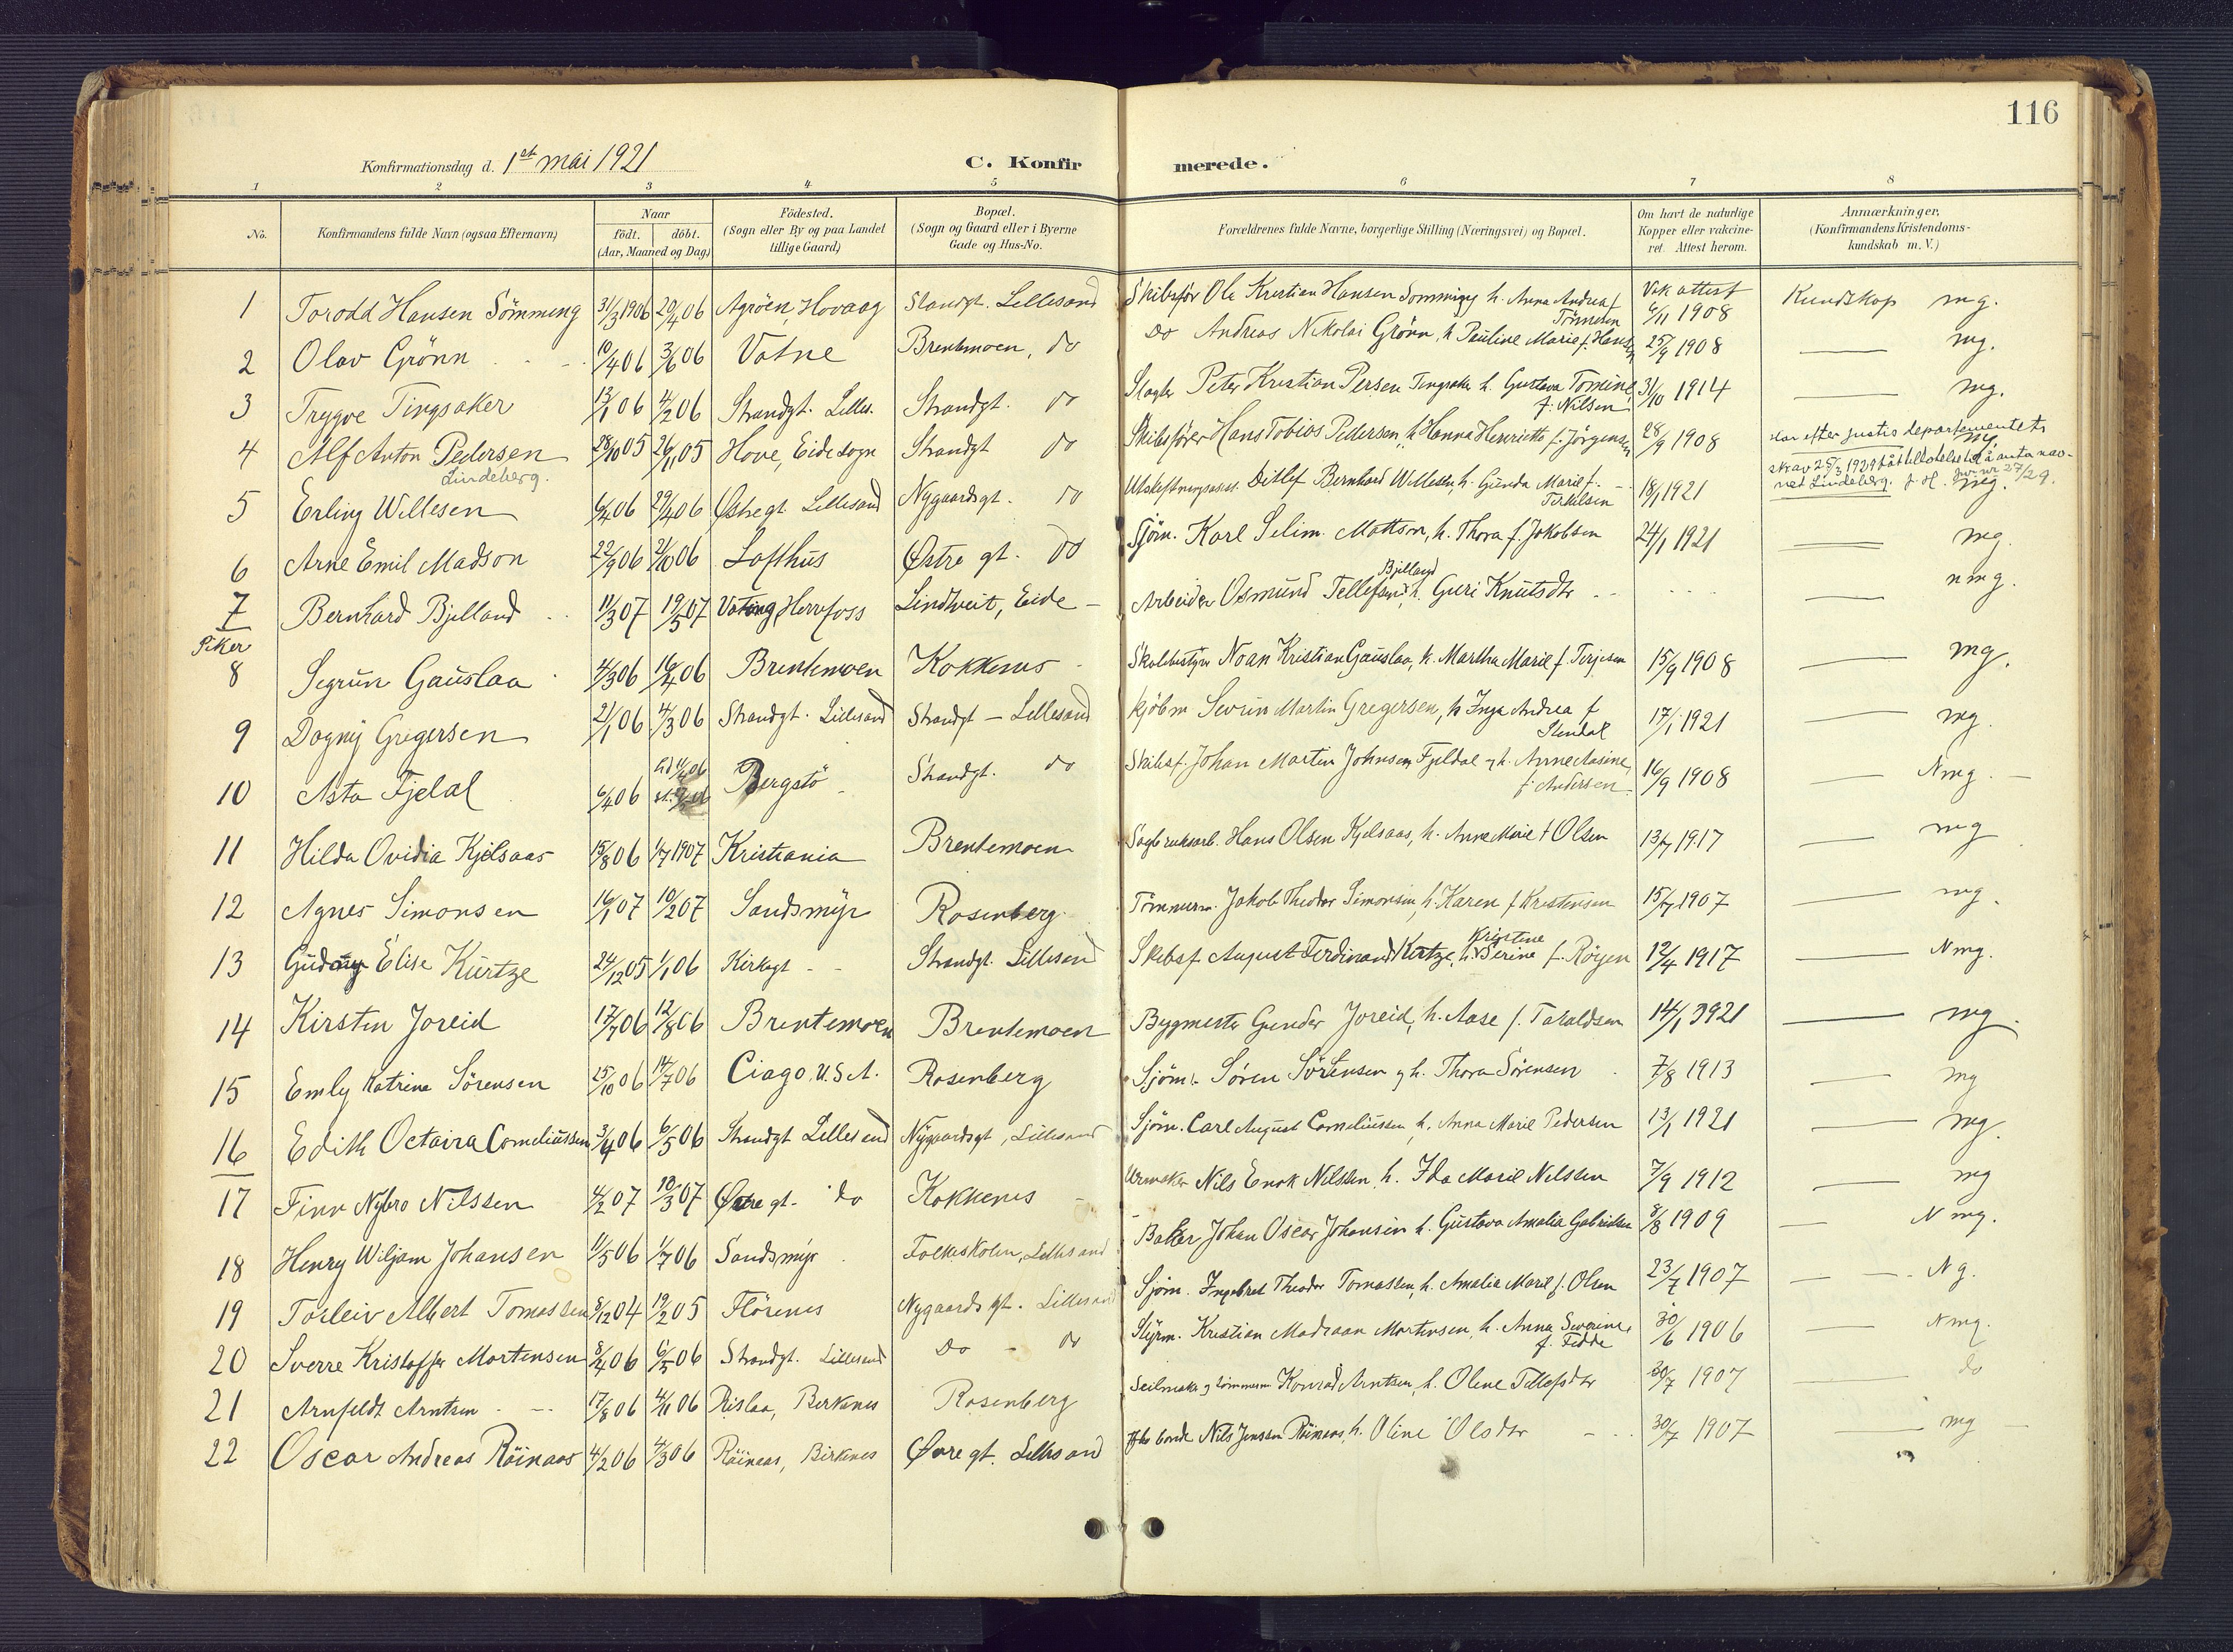 116
Konfirmationsdag d. 1st mai 1921 C. Konfirmerede.
1 2 3 4 5 6 7 8
No. Konfirmandens fulde Navn (ogsaa Efternavn) Naar födt. döbt. (Aar, Maaned og Dag) Födested. (Sogn eller By og paa Landet tillige Gaard) Bopæl. (Sogn og Gaard eller i Byerne Gade og Hus-No. Forældrenes fulde Navne, borgerlige Stilling (Næringsvei) og Bopæl. Om havt de naturlige Kopper eller vakcineret. Attest herom. Anmærkninger. (Konfirmandens Kristendomskundskab m. V.)
1 Torodd Hansen Sömming 31/3 1906 20/4 06 Agröen, Hovaag Standgt. Lillesand Skibsför Ole Kristian Hansen Sömming h. Anna Andrea f Tönnesen Vak attest 6/11 1908 Kundskap mg.
2 Olav Grönn 10/4 06 3/6 06 Vatne Brentemoen, do do Andreas Nikolai Grönn, h Pauline Marie f. Hansen 25/9 1908 mg.
3 Trygve Tingsaker 13/1 06 4/2 06 Strandgt. Lilles. Strandgt. do Slagter Peter Kristian Persen Tingsaker h. Gustava Tomine f. Nilsen 31/10 1914 mg.
4 Alf Anton Pedersen 28/10 05 26/11 05 Hove, Eide sogn Strandgt do Skibsförer Hans Tobias Pedersen, h Hanna Henriette f. Jörgensen 28/9 1908 mg.
Lindeberg.
Har efter justisdepartementets skriv 25/3 1929 fåt tillatelse til å anta navnet Lindeberg. j.d. jnr nr 27/29.
5 Erling Willesen 6/4 06 29/4 06 Østregt. Lillesand Nygaardsgt. do Ditlef Bernhard Willesen, h. Gunda Marie f. Terkelsen 18/1 1921 mg.
6 Arne Emil Madson 22/9 06 21/10 06 Lofthus Østre gt. do Sjöm. Karl Selim Mattson, h. Thora f. Jokobsen 24/1 1921 mg.
7 Bernhard Bjelland 11/3 07 19/5 07 Herefoss Lindtveit, Eide Arbeider Osmund Tellefsen Bjelland h. Guri Knutsdtr nmg.
Piker
8 Sigrun Gauslaa 4/3 06 16/4 06 Brentemoen Kokkenes Skolebestyrer Noan Kristian Gauslaa, h. Martha Marie f. Terjesen 15/9 1908 mg.
9 Dagny Gregersen 21/1 06 4/3 06 Strandgt. Lillesand Strandgt - Lillesand Kjöbm Severin Martin Gregersen, h Inga Andrea f Stendal 17/1 1921 mg.
10 Asta Fjeldal 6/4 06 Bergstö Strandgt. do Skibsf. Johan Martin Johnsen Fjeldal og h. Anne Aasine, f. Andersen 16/9 1908 Nmg.
11 Hilda Ovidia Kjelsaas 15/8 06 1/7 1907 Kristiania Brentemoen Sagbruksarb. Hans Olsen Kjelsaas, h. Anne Marie f Olsen 13/7 1917 mg
12 Agnes Simonsen 16/1 07 10/2 07 Sandsmyr Rosenberg Tömmerm. Jakob Theodor Simonsen, h. Karen f Kristensen 15/7 1907 mg.
13 Gudny Elise Kurtze 24/12 05 1/1 06 Kirkegt Strandgt. Lillesand Skibsf August Ferdinand Kurtze, h. Kristine Serine f. Röyen 12/4 1917 Nmg.
14 Kirsten Joreid 17/7 06 12/8 06 Brentemoen Brentemoen Bygmester Gunder Joreid, h. Aase f. Taraldsen 14/1 3921 mg.
15 Emly Katrine Sörensen 25/10 06 14/7 06 Ciago, U.S.A. Rosenberg Sjöm. Sören Sörensen og h. Thora Sörensen 7/8 1913 mg
16 Edith Octavia Corneliussen 3/4 06 6/5 06 Strandgt Lillesand Nygaardsgt, Lillesand Sjöm. Carl August Corneliussen h. Anna Marie Pedersen 13/1 1921 mg.
17 Finn Nybro Nilssen 4/2 07 10/3 07 Østre gt. do Kokkenes Urmaker Nils Enok Nilssen, h. Ida Marie Nilssen 7/9 1912 mg
18 Henry Wiljam Johansen 11/5 06 1/7 06 Sandsmyr Folkeskolen, Lillesand Baker Johan Oscar Johansen h. Gustava Amalia Gabrielsen 8/8 1909 Nmg.
19 Torleiv Albert Tomassen 8/12 04 19/2 05 Flörenes Nygaardsgt. Lillesand Sjöm. Ingebret Theodor Tomassen, h. Amalia Marie f. Olsen 23/7 1907 Ng.
20 Sverre Kristoffer Mortensen 8/4 06 6/5 06 Strandgt. Lillesand do - do Styrm. Kristian Madraan Mortensen, h. Anna Severine f. Fedde 30/6 1906 Nmg.
21 Arnfeldt Arntsen 17/8 06 4/11 06 Rislaa, Birkenes Rosenberg Seilmaker og tömmerm Konrad Arntsen, h. Oline Tellefsdtr 30/7 1907 do
22 Oscar Andreas Röinaas 4/2 06 4/3 06 Röinaas, Birkenes Øvre gt. Lillesand Nils Jensen Röinaas, h. Oline Olsdtr 30/7 1907 mg